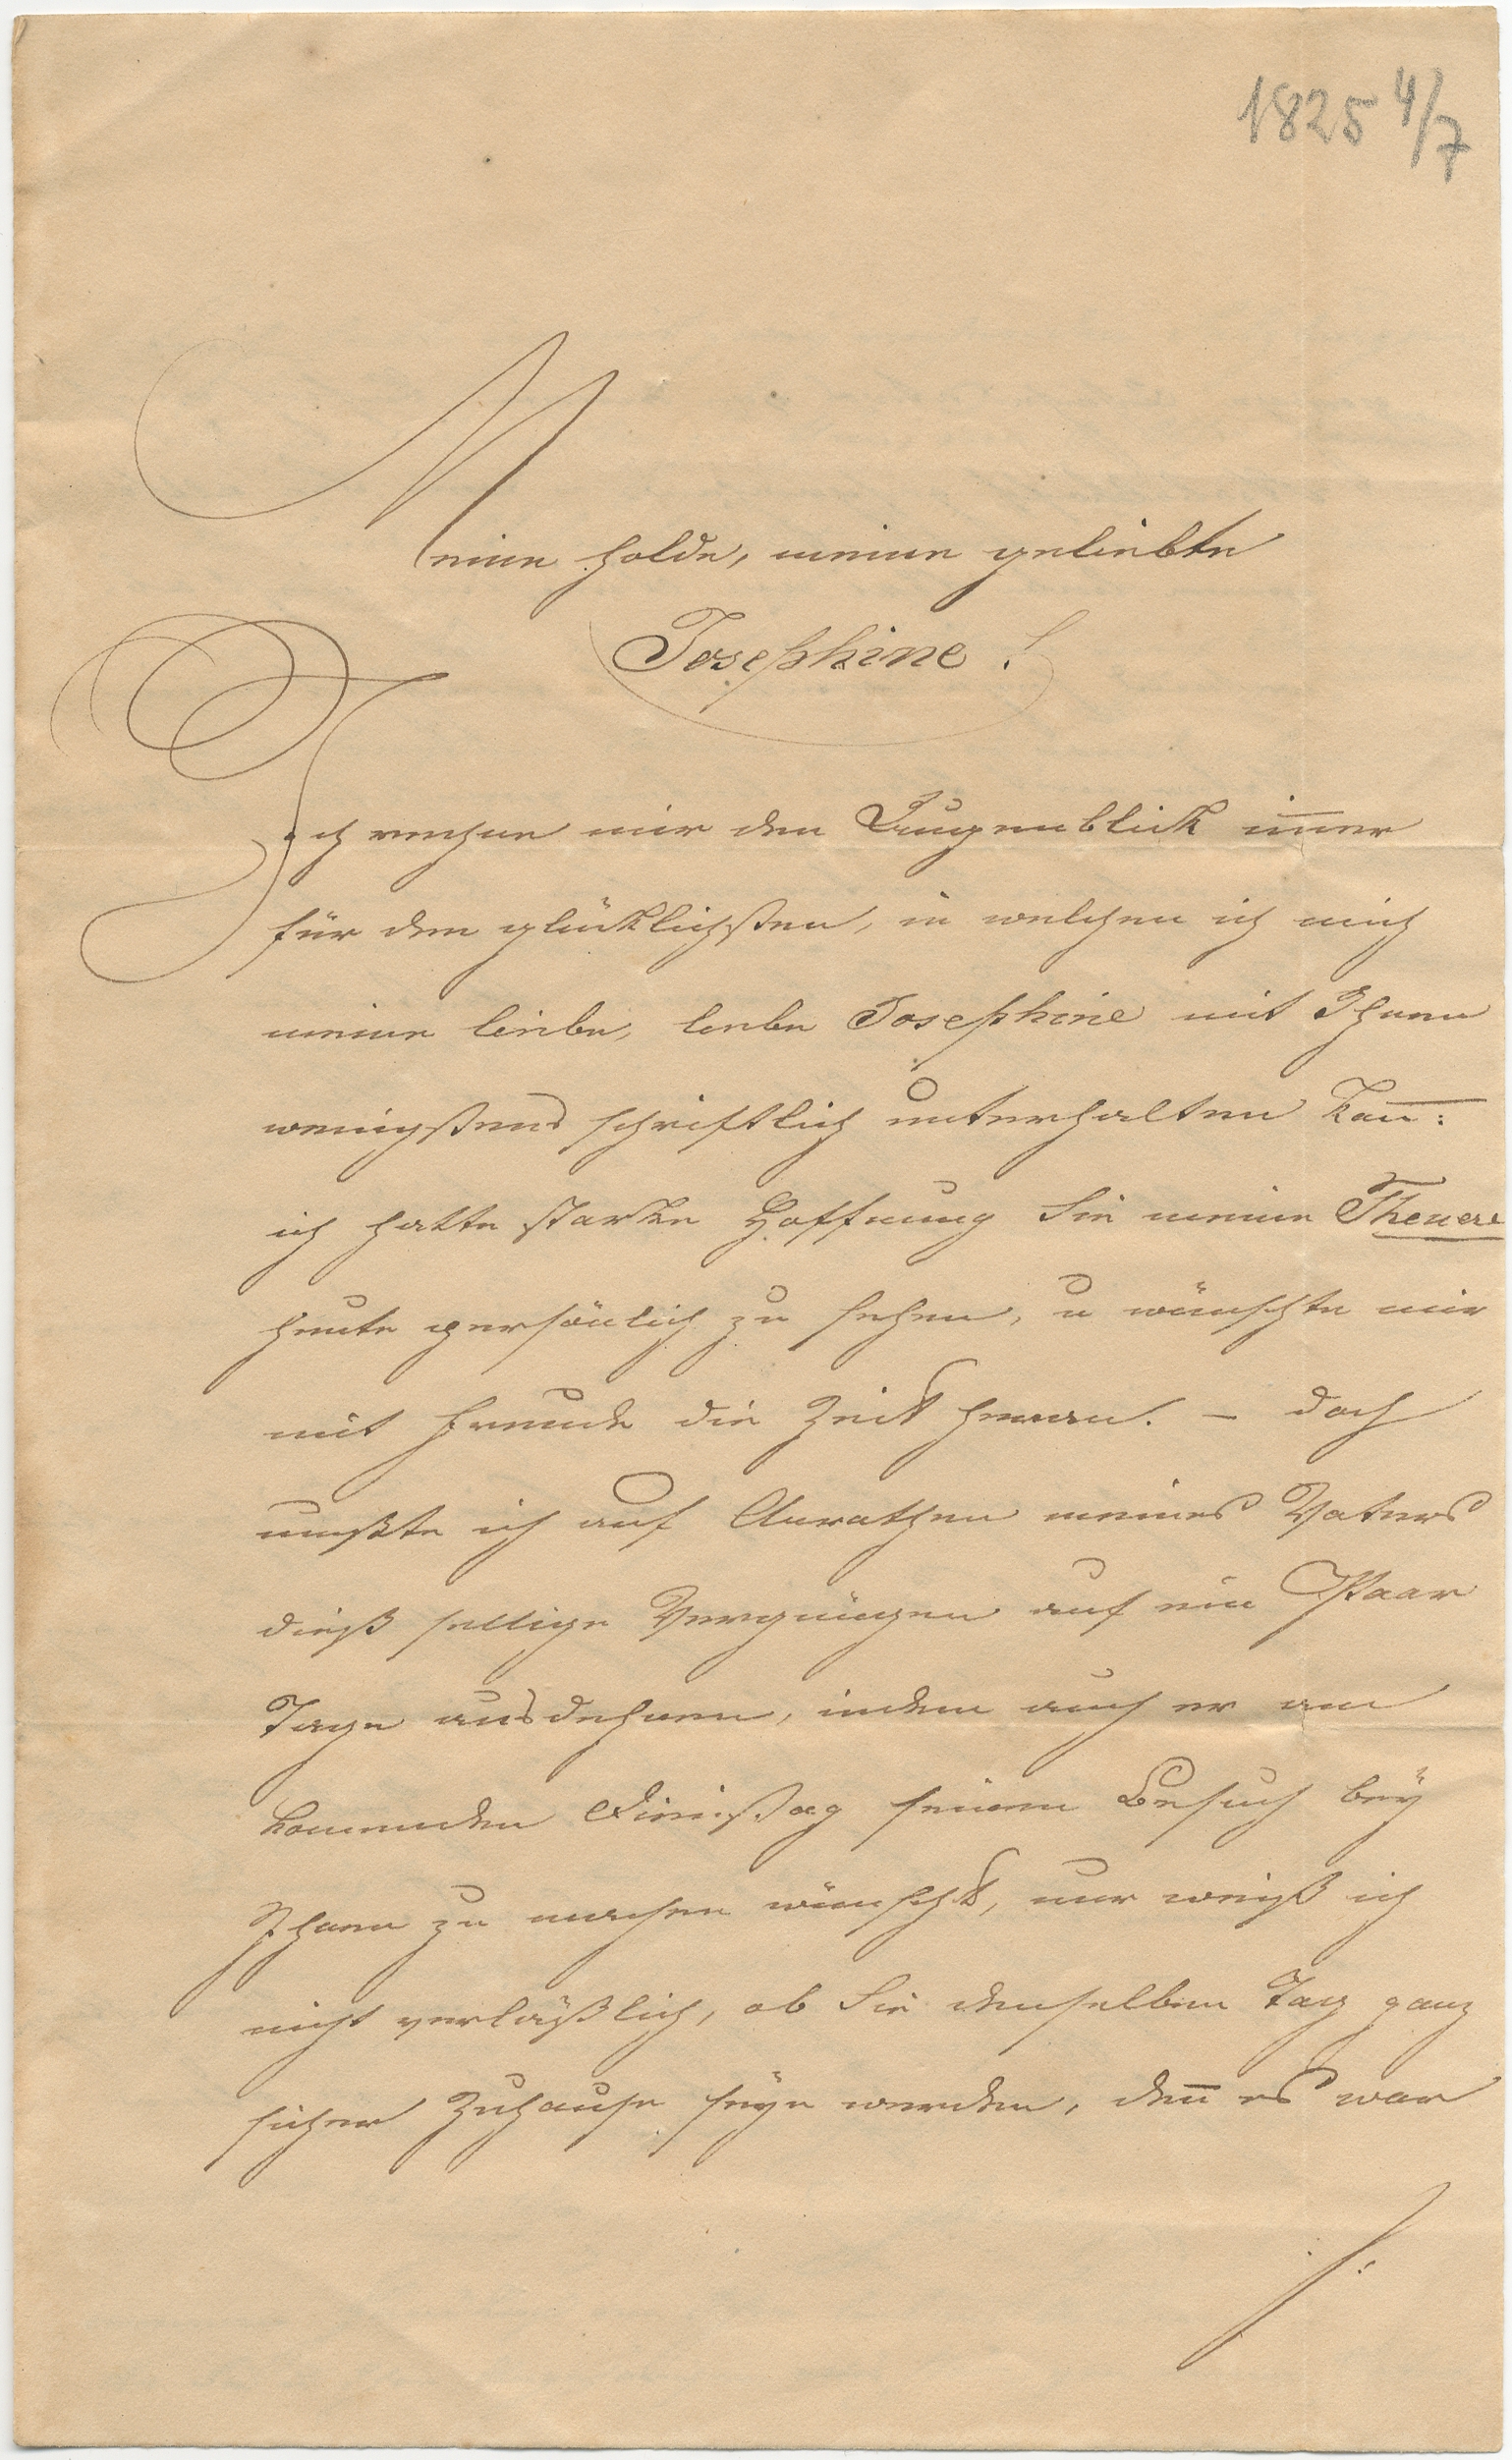 1825 4/7
Meine holde, meine geliebte
Josephine!
Ich rechne mir den Augenblick im̅er
für den glücklichsten, in welchen ich mich
meine liebe, liebe Josephine mit Ihnen
wenigstens schriftlich unterhalten kan̅:
ich hatte starke Hoffnung Sie meine Theuere
heute persönlich zu sehen, u wünschte mir
mit Freude die Zeit heran. – doch
mußte ich auf Anrathen meines Vaters
dieß selige Vergnügen auf ein Paar
Tage ausdehnen, indem auch er am
kommenden Dienstag seinen Besuch bey
Ihnen zu machen wünscht, nur weiß ich
nicht verläßlich, ob Sie denselben Tag ganz
sicher Zuhause seyn werden, den̅ es war